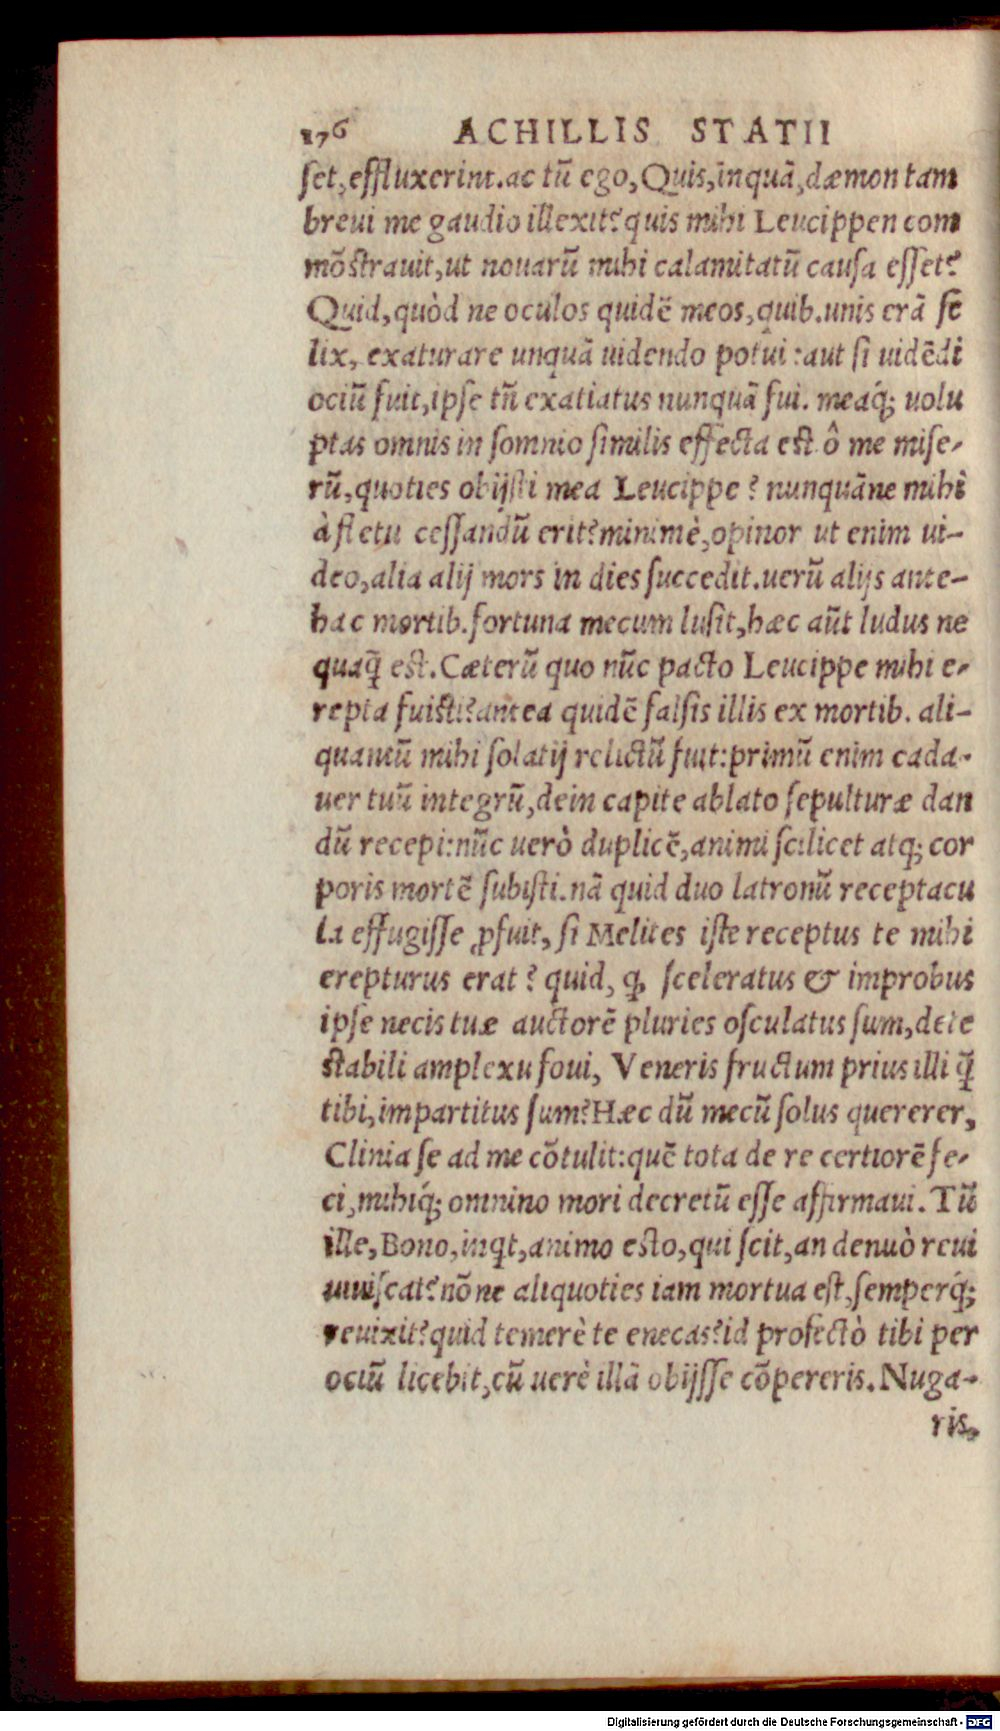 176 ACHILLIS STATII
ſet, effluxerint. ac tū ego, Quis, inquā, dæmon tam
breui me gaudio illexit? quis mihi Leucippen com
mōſtrauit, ut nouarū mihi calamitatū cauſa eſſet?
Quid, quòd ne oculos quidē meos, quib. unis erā fę
lix, exaturare unquā uidendo potui: aut ſi uidēdi
ociū fuit, ipſe tñ exatiatus nunquā fui. meaq́; uolu
ptas omnis in ſomnio ſimilis effecta eſt. ô me miſe-
rū, quoties obijſti mea Leucippe? nunquāne mihi
à fletu ceſſandū erit? minimè, opinor ut enim ui-
deo, alia alij mors in dies ſuccedit. uerū alijs ante-
hac mortib. fortuna mecum luſit, hæc aūt ludus ne
quaq̄ eſt. Cæterū quo nūc pacto Leucippe mihi e-
repta fuiſti? antea quidē falſis illis ex mortib. ali-
quantū mihi ſolatij relictū fuit: primū enim cada-
uer tuū integrū, dein capite ablato ſepulturæ dan
dū recepi: nūc uerò duplicē, animi ſcilicet atq; cor
poris mortē ſubiſti. nā quid duo latronū receptacu
la effugiſſe ꝓfuit, ſi Melites iſte receptus te mihi
erepturus erat? quid, ꝙ ſceleratus & improbus
ipſe necis tuæ auctorē pluries oſculatus ſum, dete
ſtabili amplexu foui, Veneris fructum prius illi q̄
tibi, impartitus ſum? Hæc dū mecū ſolus quererer,
Clinia ſe ad me cōtulit: quē tota de re certiorē fe-
ci, mihiq́; omnino mori decretū eſſe affirmaui. Tū
ille, Bono, inqt, animo eſto, qui ſcit, an denuò reui
uiuiſcat? nōne aliquoties iam mortua eſt, ſemperq́;
reuixit? quid temerè te enecas? id profectò tibi per
ociū licebit, cū uerè illā obijſſe cōpereris. Nuga-
ris,
Digitalisierung gefördert durch die Deutsche Forschungsgemeinschaft - DFG